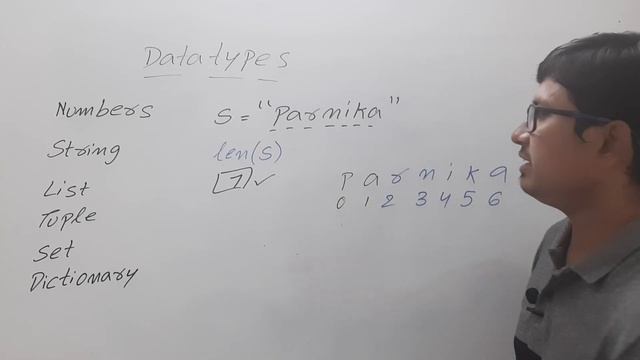 Datatypes
Numbers
String
List
Tuple
Set
Dictionary
S = "Parnika"
len(S)
7 ✓
P a r n i k a
0 1 2 3 4 5 6